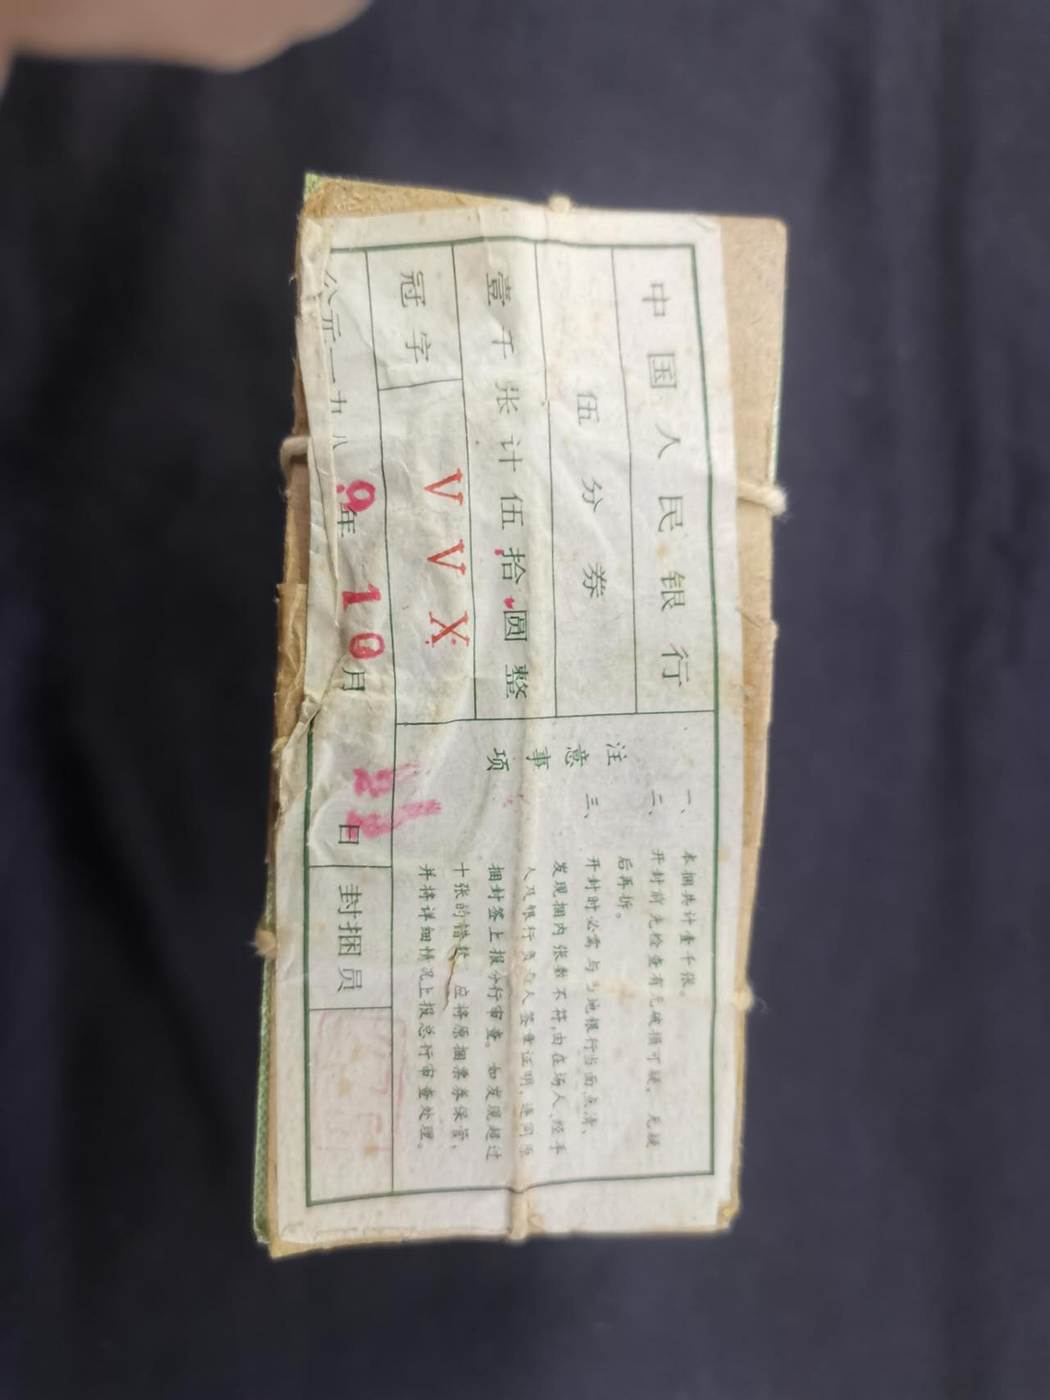 中国人民银行
伍分券
壹千张计伍拾圆整
冠字 VVX
公元一九八9年10月21日
封捆员
注意事项
一、本捆共计壹千张。
二、开封前先检查有无破损可疑，无疑
后再拆。
三、开封时必需与当地银行当面点清，
发现捆内张数不符，由在场人、经手
人及银行负责人签章证明，连同原
捆封签上报分行审查。如发现超过
十张的错款，应将原捆票券保管，
并将详细情况上报总行审查处理。